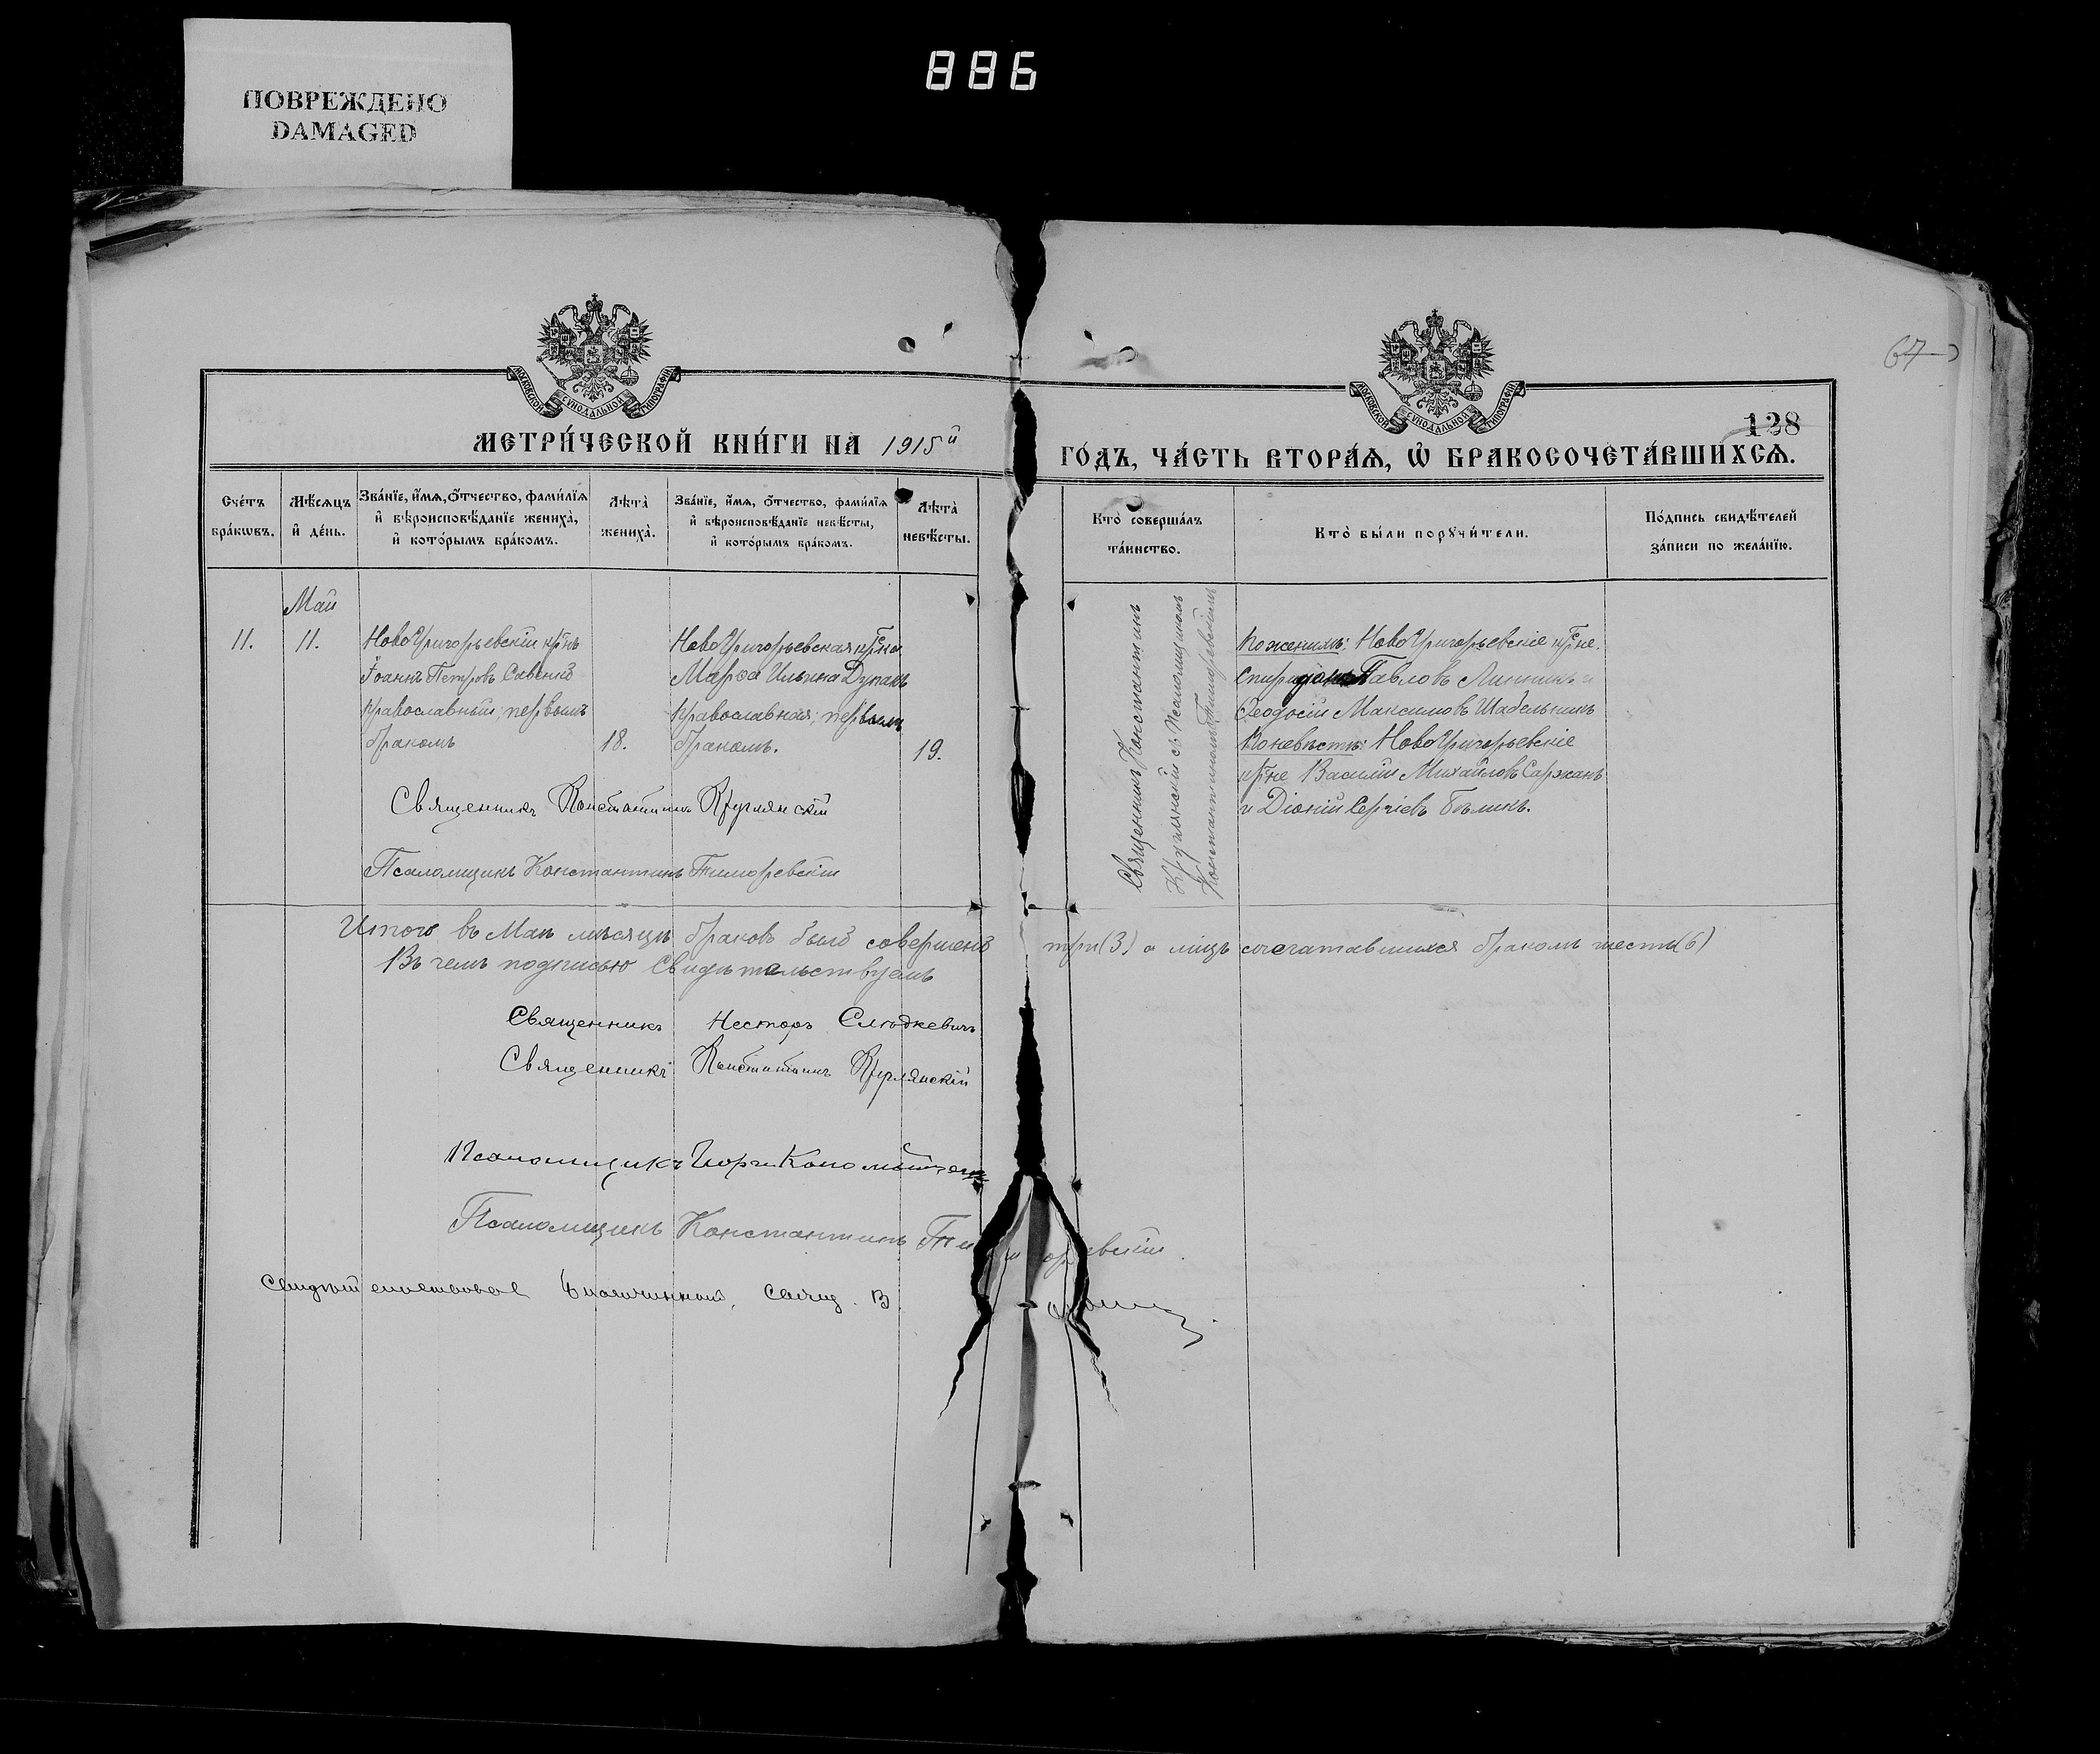 886
ПОВРЕЖДЕНО
DAMAGED
67
МОСКОВСКОЙ СУНОДАЛЬНОЙ ТИПОГРАФІИ
МОСКОВСКОЙ СУНОДАЛЬНОЙ ТИПОГРАФІИ
128
МЕТРИ́ЧЕСКОЙ КНИ́ГИ НА 1915й
ГО́ДЪ, ЧА́СТЬ ВТОРА́Я, Ѡ БРАКОСОЧЕТА́ВШИХСЯ.
Сче́тъ
бра́кѡвъ.
Мѣ́сяцъ
и҆ де́нь.
Зва́нїе, и҆́мя, ѻ҆́тчество, фами́лїя
и҆ вѣроисповѣ́данїе жениха̀,
и҆ кото́рымъ бра́комъ.
Лѣта̀
жениха̀.
Зва́нїе, и҆́мя, ѻ҆́тчество, фами́лїя
и҆ вѣроисповѣ́данїе невѣ́сты,
и҆ кото́рымъ бра́комъ.
Лѣта̀
невѣ́сты.
Кто̀ соверша́лъ
та́инство.
Кто̀ бы́ли порꙋчи́тели.
По́дпись свидѣ́телей
за́писи по жела́нїю.
Май
11.
11.
НовоГригорьевскій крнъ
Іоаннъ Петровъ Савенко
православный; первымъ
бракомъ
18.
НовоГригорьевская крнка
Марѳа Ильина Дупакъ
православная; первымъ
бракомъ.
19.
Священникъ Константинъ
Круглянскій съ Псаломщикомъ
Константиномъ Тиморевскимъ
По женихѣ: НовоГригорьевскіе крне.
Спиридонъ Павловъ Линникъ и
Ѳеодосій Максимовъ Шабельникъ
По невѣстѣ: НовоГригорьевскіе
крне Василій Михайловъ Саржанъ
и Діоній Сергіевъ Бѣликъ.
Священникъ Константинъ Круглянскій
Псаломщикъ Константинъ Тиморевскій
Итого въ Маѣ мѣсяцѣ браковъ было совершено три (3.) а лицъ сочетавшихся бракомъ шесть (6)
Въ чемъ подписью Свидѣтельствуемъ
Священникъ Несторъ
Священникъ Константинъ Круглянскій
Псаломщикъ
Псаломщикъ Константинъ Тиморевскій
Благочинный, Свящ. В.